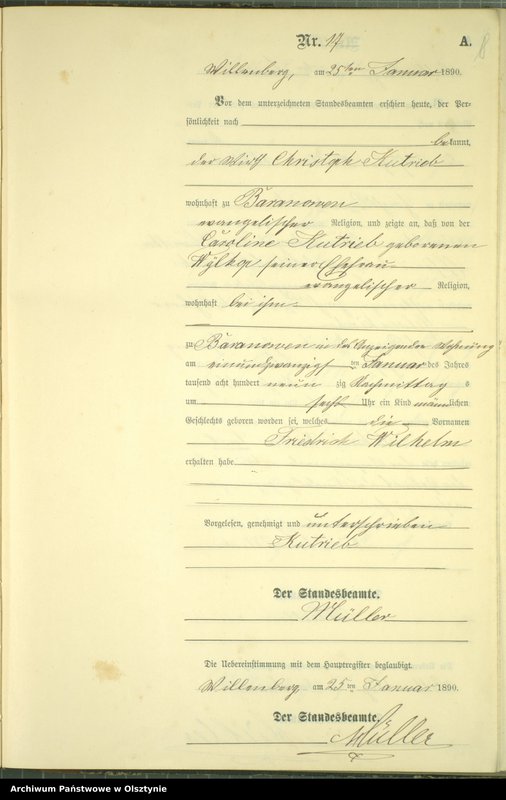 Nr. 17 A.
8
Willenberg, am 25ten Januar 1890.
Vor dem unterzeichneten Standesbeamten erschien heute, der Per-
sönlichkeit nach
bekannt,
der Wirth Christoph Kutrieb
wohnhaft zu Baranowen
evangelischer Religion, und zeigte an, daß von der
Caroline Kutrieb geborenen
seiner Ehefrau
evangelischer Religion,
wohnhaft bei ihm
zu Baranowen in des Anzeigenden Wohnung
am einundzwanzigsten Januar des Jahres
tausend acht hundert neunzig Nachmittags
um sechs Uhr ein Kind männlichen
Geschlechts geboren worden sei, welches die Vornamen
Friedrich Wilhelm
erhalten habe
Vorgelesen, genehmigt und unterschrieben
Kutrieb
Der Standesbeamte.
Müller
Die Uebereinstimmung mit dem Hauptregister beglaubigt.
Willenberg am 25ten Januar 1890.
Der Standesbeamte.
Müller
Archiwum Państwowe w Olsztynie